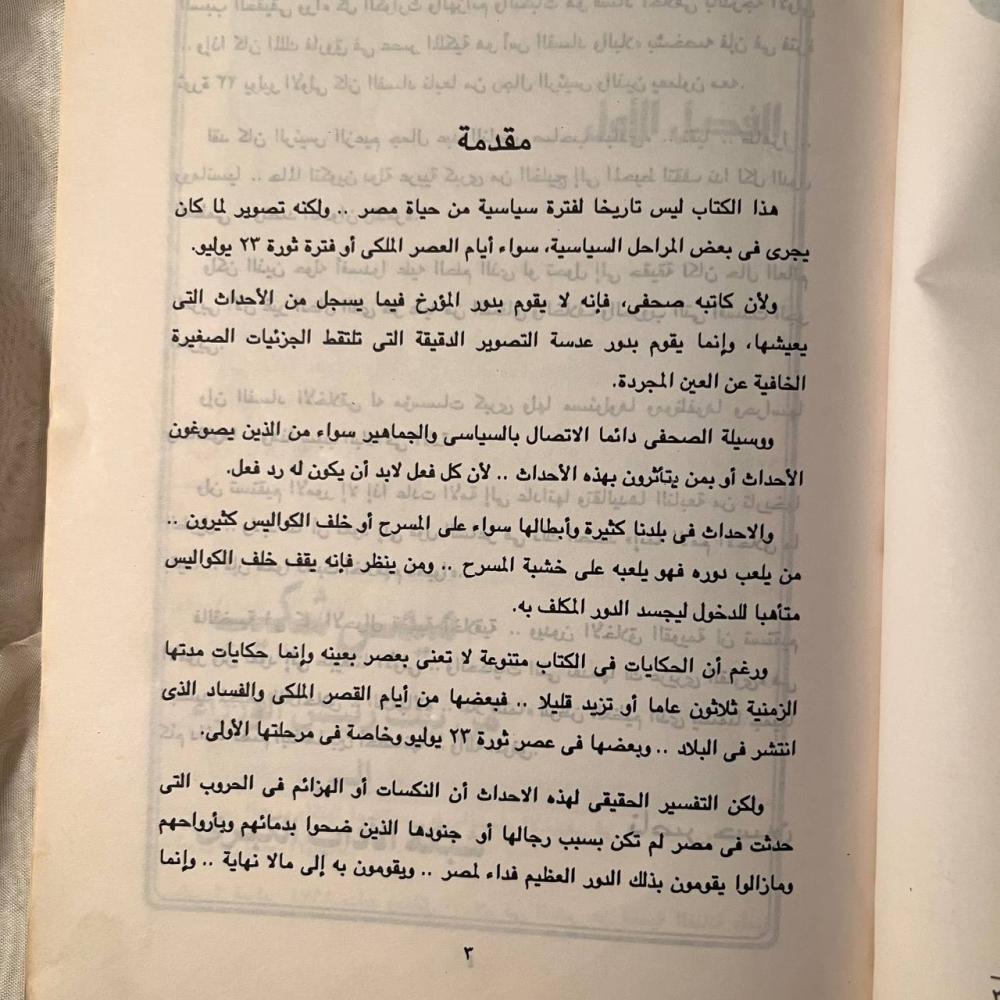 مقدمة
هذا الكتاب ليس تاريخا لفترة سياسية من حياة مصر .. ولكنه تصوير لما كان
يجرى فى بعض المراحل السياسية، سواء أيام العصر الملكى أو فترة ثورة ٢٣ يوليو.
ولأن كاتبه صحفى، فإنه لا يقوم بدور المؤرخ فيما يسجل من الأحداث التى
يعيشها، وإنما يقوم بدور عدسة التصوير الدقيقة التى تلتقط الجزئيات الصغيرة
الخافية عن العين المجردة.
ووسيلة الصحفى دائما الاتصال بالسياسى والجماهير سواء من الذين يصوغون
الأحداث أو بمن يتأثرون بهذه الأحداث .. لأن كل فعل لابد أن يكون له رد فعل.
والاحداث فى بلدنا كثيرة وأبطالها سواء على المسرح أو خلف الكواليس كثيرون ..
من يلعب دوره فهو يلعبه على خشبة المسرح .. ومن ينظر فإنه يقف خلف الكواليس
متأهبا للدخول ليجسد الدور المكلف به.
ورغم أن الحكايات فى الكتاب متنوعة لا تعنى بعصر بعينه وإنما حكايات مدتها
الزمنية ثلاثون عاما أو تزيد قليلا .. فبعضها من أيام القصر الملكى والفساد الذى
انتشر فى البلاد .. وبعضها فى عصر ثورة ٢٣ يوليو وخاصة فى مرحلتها الأولى.
ولكن التفسير الحقيقى لهذه الاحداث أن النكسات أو الهزائم فى الحروب التى
حدثت فى مصر لم تكن بسبب رجالها أو جنودها الذين ضحوا بدمائهم وبأرواحهم
ومازالوا يقومون بذلك الدور العظيم فداء لمصر .. ويقومون به إلى مالا نهاية .. وإنما
٣